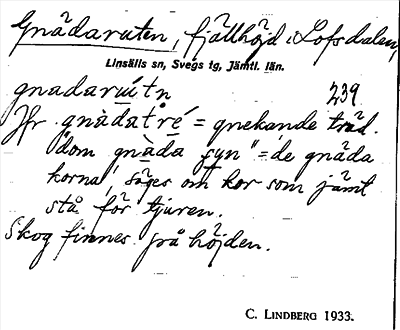 Gnädaruten, fjällhöjd i Lofsdalen,
Linsälls sn, Svegs tg, Jämtl. län.
gnadarúitn 239
Jfr gnàdatre´ = gnekande träd.
"dom gnàda syn" = de gnäda
korna, säges om kor som jämt
stå för tjuren.
Skog finnes på höjden.
C. LINDBERG 1933.